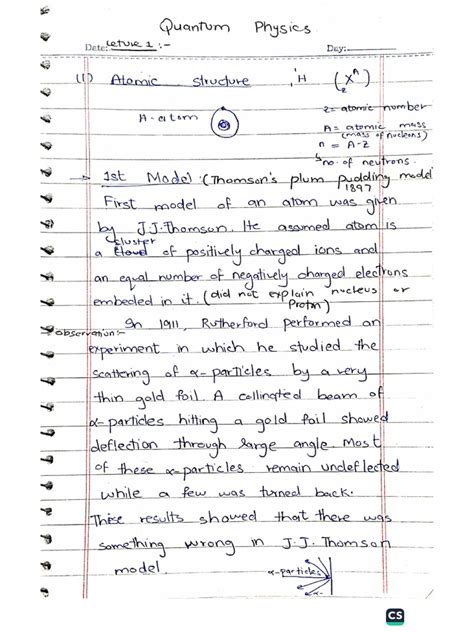 Quantum Physics
Date: Leture 1 :- Day:
(1) Atomic structure ¹H (zXᴬ)
H-atom
z = atomic number
A = atomic mass
(mass of nucleons)
n = A-Z
no. of neutrons.
→ 1st Model : (Thomson's plum pudding model
1897
First model of an atom was given
by J.J.Thomson. He assumed atom is
cluster
a cloud of positively charged ions and
an equal number of negatively charged electrons
embeded in it. (did not explain nucleus or
Proton)
→ observation:-
In 1911, Rutherford performed an
experiment in which he studied the
scattering of α-particles by a very
thin gold foil. A collinated beam of
α-particles hitting a gold foil showed
deflection through large angle. Most
of these α-particles remain undeflected
while a few was turned back.
These results showed that there was
something wrong in J.J. Thomson
model.
α-particles
α-
CS